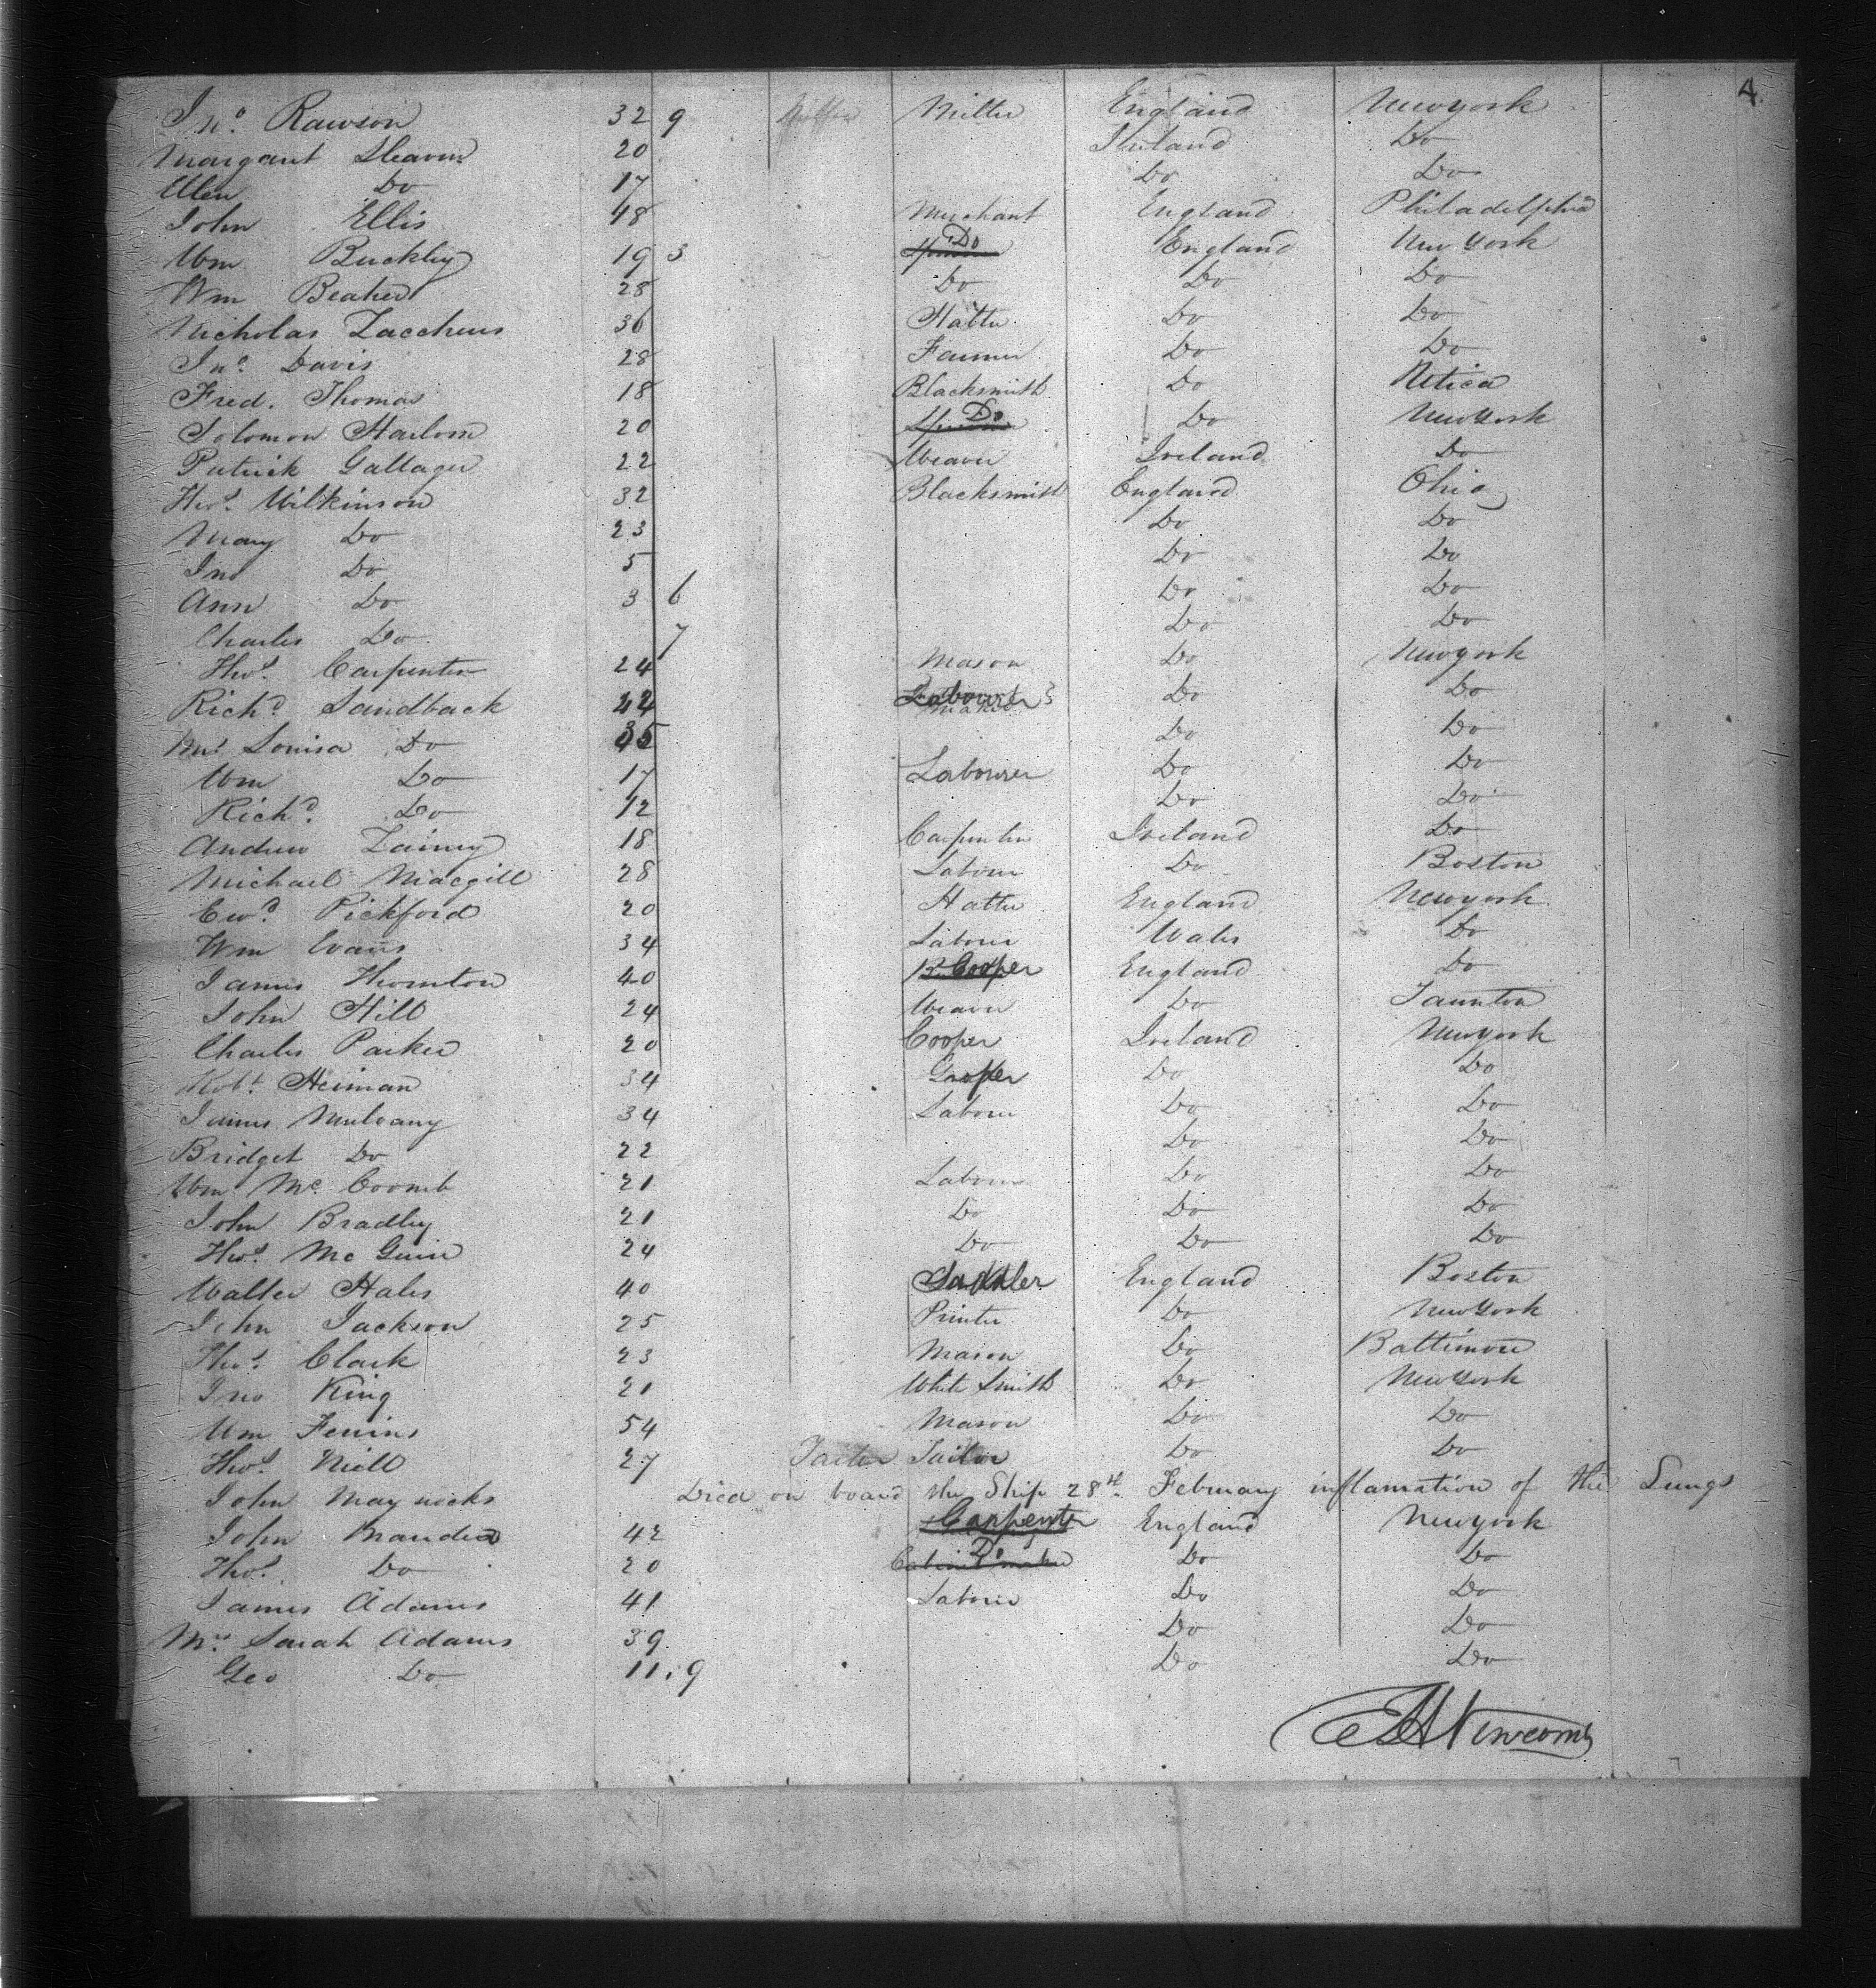 4
Jno. Rawson 32 9 Miller England Newyork
Margaret 20 Ireland Do
Ellen Do 17 Do Do
John Ellis 48 Merchant England Philadelphia
Wm Buckley 19 3 Do England New York
Wm Beaker 28 Do Do Do
Nicholas Zaccheus 36 Hatter Do Do
Jno. Davis 28 Farmer Do Do
Fred. Thomas 18 Blacksmith Do Utica
Solomon 20 Do Do New York
Patrick Gallager 22 Weaver Ireland Do
Thos. Wilkinson 32 Blacksmith England Ohio
Mary Do 23 Do Do
Jno Do 5 Do Do
Ann Do 3 6 Do Do
Charles Do 7 Do Do
Thos. Carpenter 24 Mason Do Newyork
Richd. Sandback Labourer Do Do
Mrs Louisa Do Do Do
Wm Do 17 Labourer Do Do
Richd. Do 12 Do Do
Andrew 18 Carpenter Ireland Do
Michael Macgill 28 Labourer Do Boston
Edwd. Pickford 20 Hatter England Newyork
Wm Evans 34 Labourer Wales Do
James Thornton 40 Cooper England Do
John Hill 24 Weaver Do Taunton
Charles Parker 20 Cooper Ireland Newyork
Robt. Heiman 34 Do Do
James Mulvany 34 Labourer Do Do
Bridget Do 22 Do Do
Wm Mc. Coomb 21 Labourer Do Do
John Bradley 21 Do Do Do
Thos. Mc Guire 24 Do Do Do
Walter Hales 40 Saddler England Boston
John Jackson 25 Printer Do New York
Thos. Clark 23 Mason Do Baltimore
Jno King 21 White Smith Do New York
Wm 54 Mason Do Do
Thos. Niell 27 Tailor Do Do
John Maynocks Died on board the Ship 28th. February inflamation of the Lungs
John 42 Carpenter England Newyork
Thos. Do 20 Do Do Do
James Adams 41 Labourer Do Do
Mrs. Sarah Adams 39 Do Do
Geo Do 11.9 Do Do
Newcomb